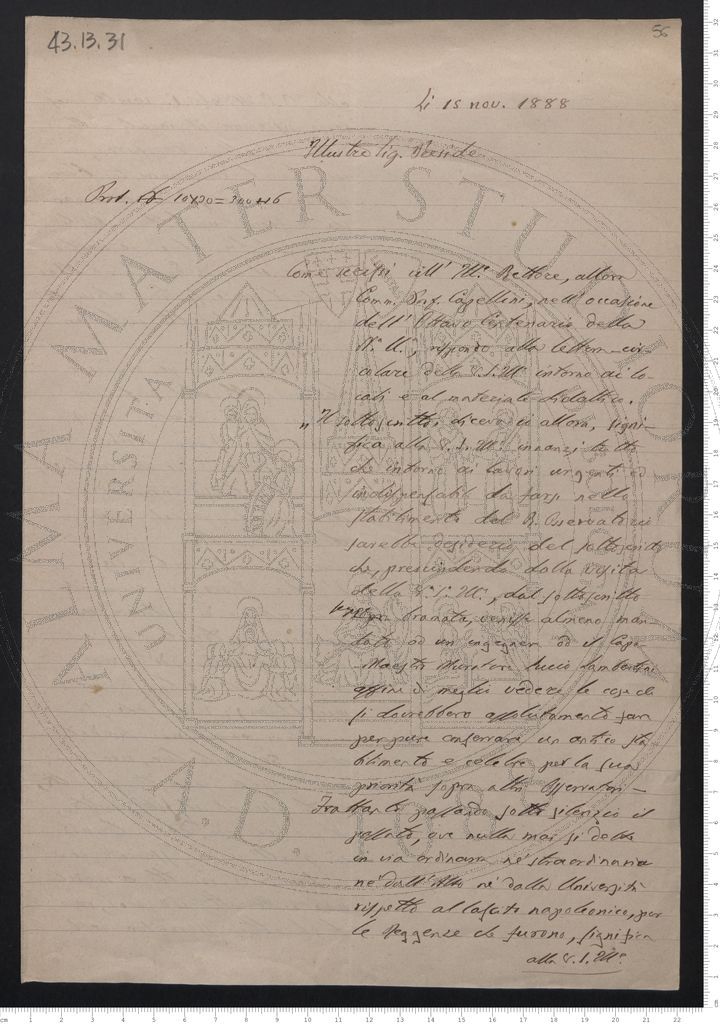 43.13.31
56
Li 15 nov. 1888
Illustre Sig. Preside
Prot.
Come scrissi all' Ill.º Rettore, allora
Comm. Prof. Capellini, nell' occasione
dell' Ottavo Centenario della
rispondo alla lettera cir-
colare della V. S. Ill.ª intorno ai lo-
cali e al materiale didattico.
„ Il sottoscritto, dicevo ci allora, signi-
fica alla V. S. Ill.ª innanzi tutto
che intorno ai lavori urgenti ed
indispensabili da farsi nello
stabilimento del R. Osservatorio
sarebbe desiderio del sottoscritto
che, prescindendo dalla visita
della V. S. Ill.ª, dal sottoscritto
sempre bramata, venisse almeno man-
dato od un ingegnere od il Capo
Maestro Muratore Lambertini
affine di meglio vedere le cose che
si dovrebbero assolutamente fare
per pure conservare un antico sta-
bilimento e celebre per la sua
priorità sopra altri Osservatori –
Frattanto passando sotto silenzio il
passato, ove nulla mai si debbe
in via ordinaria nè straordinaria
nè dall' Alto nè dalla Università
rispetto al lascito napoleonico, per
le Reggenze che furono, significa
alla V. S. Ill.ª
ALMA MATER STUDIORUM
UNIVERSITA
A.D. 1088